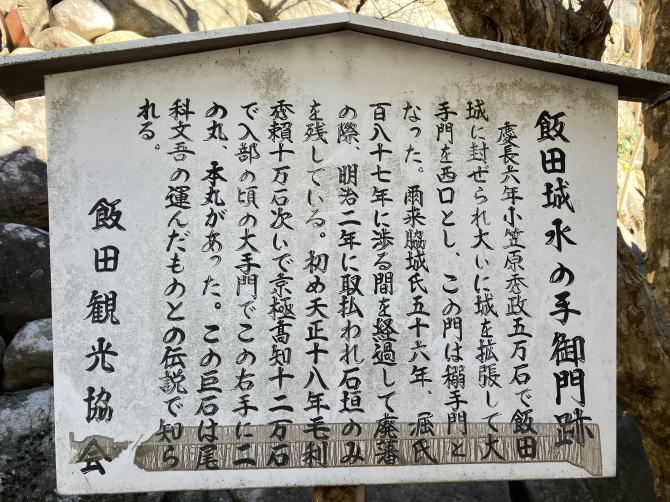 飯田城水の手御門跡
慶長六年小笠原秀政五万石で飯田
城に封せられ大いに城を拡張して大
手門を西口とし、この門は搦手門と
なった。爾来脇城氏五十六年、堀氏
百八十七年に渉る間を経過して廃藩
の際、明治二年に取払われ石垣のみ
を残している。初め天正十八年毛利
秀頼十万石次いで京極高知十二万石
で入部の頃の大手門でこの右手に二
の丸、本丸があった。この巨石は尾
科文吾の運んだものとの伝説で知ら
れる。
飯田観光協会